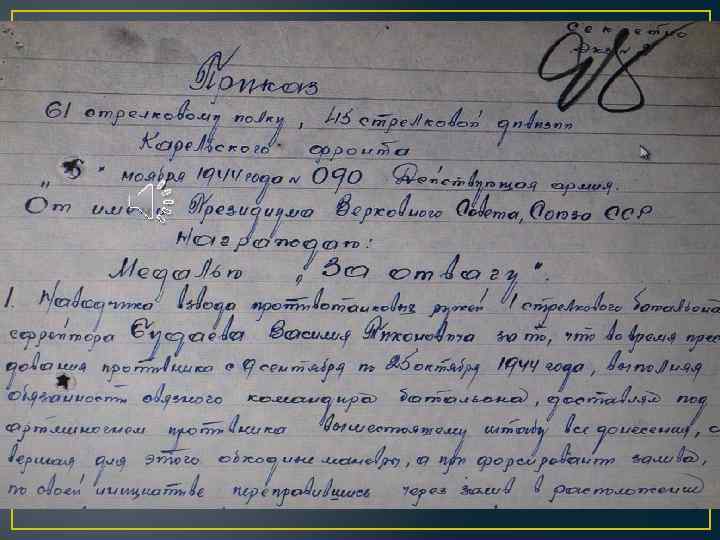 Секретно
Экз № 2
98
Приказ
61 стрелковому полку, 45 стрелковой дивизии
Карельского фронта
"6" ноября 1944 года № 090 Действующая армия.
От имени Президиума Верховного Совета, Союза ССР
Награждаю:
Медалью "За отвагу".
1. Наводчика взвода противотанковых ружей 1 стрелкового батальона
ефрейтора Василия Тихоновича за то, что во время прес
дования противника с 9 сентября по 25 октября 1944 года, выполняя
обязанности связного командира батальона, доставлял под
артминогнем противника вышестоящему штабу все донесения, с
вершая для этого обходные маневры, а при форсировании залива,
по своей инициативе переправившись через залив в расположении